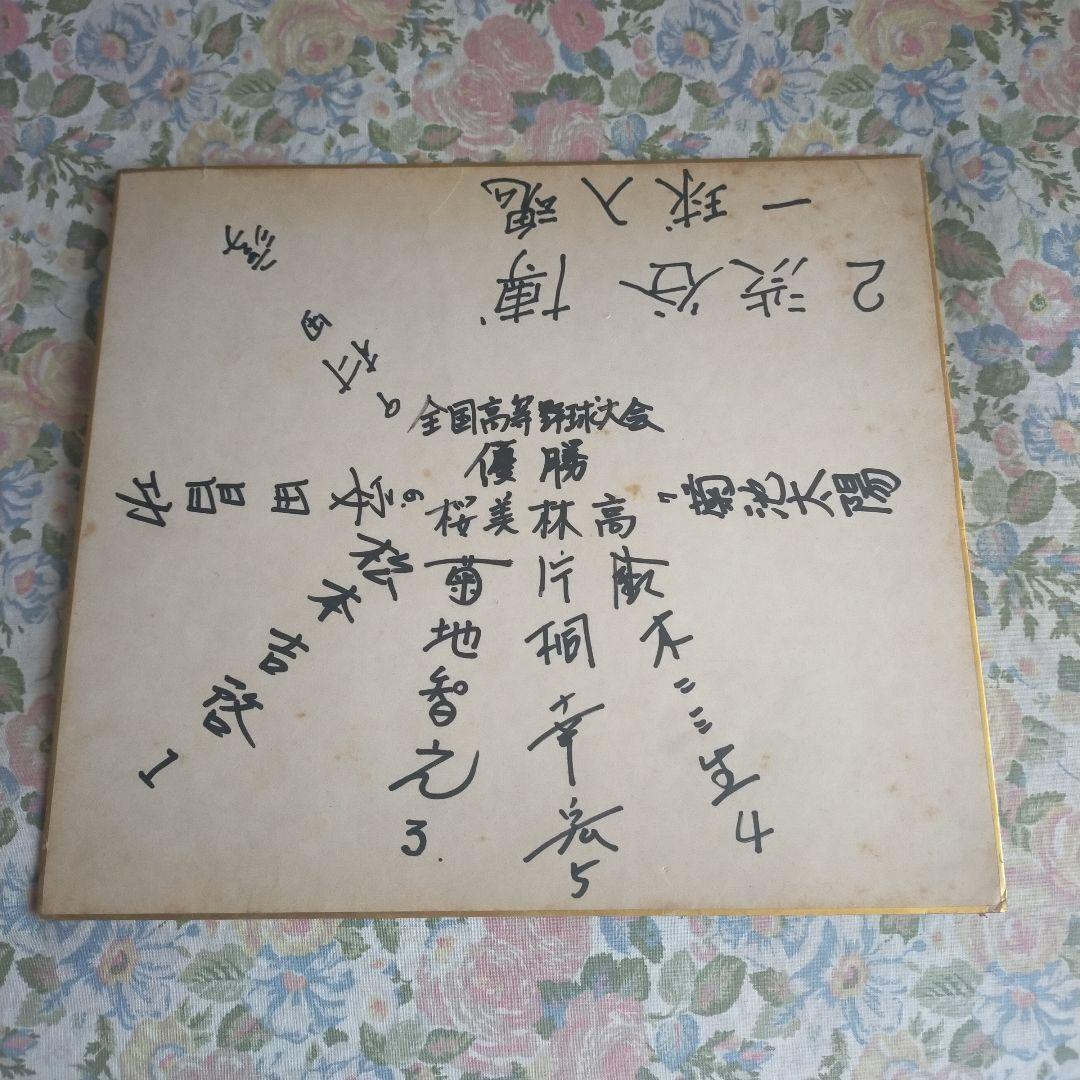 一球入魂
2 渋谷 博
全国高等野球大会
優勝
桜美林高
7 菊池太陽
6. 安田昌功
松本吉啓 1
菊地智之 3.
片桐幸宏 5
鈴木二三生 4
9 村田